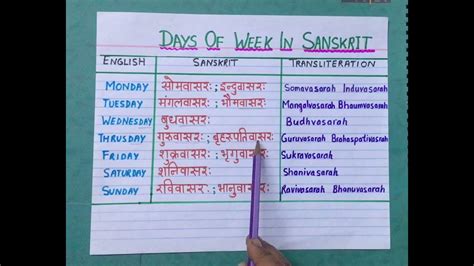 DAYS OF WEEK IN SANSKRIT
ENGLISH SANSKRIT TRANSLITERATION
MONDAY सोमवासरः ; इन्दुवासरः Somavasarah Induvasarah
TUESDAY मंगलवासरः ; भौमवासरः Mangalvasarah Bhaumvasarah
WEDNESDAY बुधवासरः Budhvasarah
THRUSDAY गुरुवासरः ; बृहस्पतिवासरः Guruvasarah Brahaspativasrah
FRIDAY शुक्रवासरः ; भृगुवासरः Sukravasarah
SATURDAY शनिवासरः Shanivasarah
SUNDAY रविवासरः ; भानुवासरः Ravivasarah Bhanuvasarah